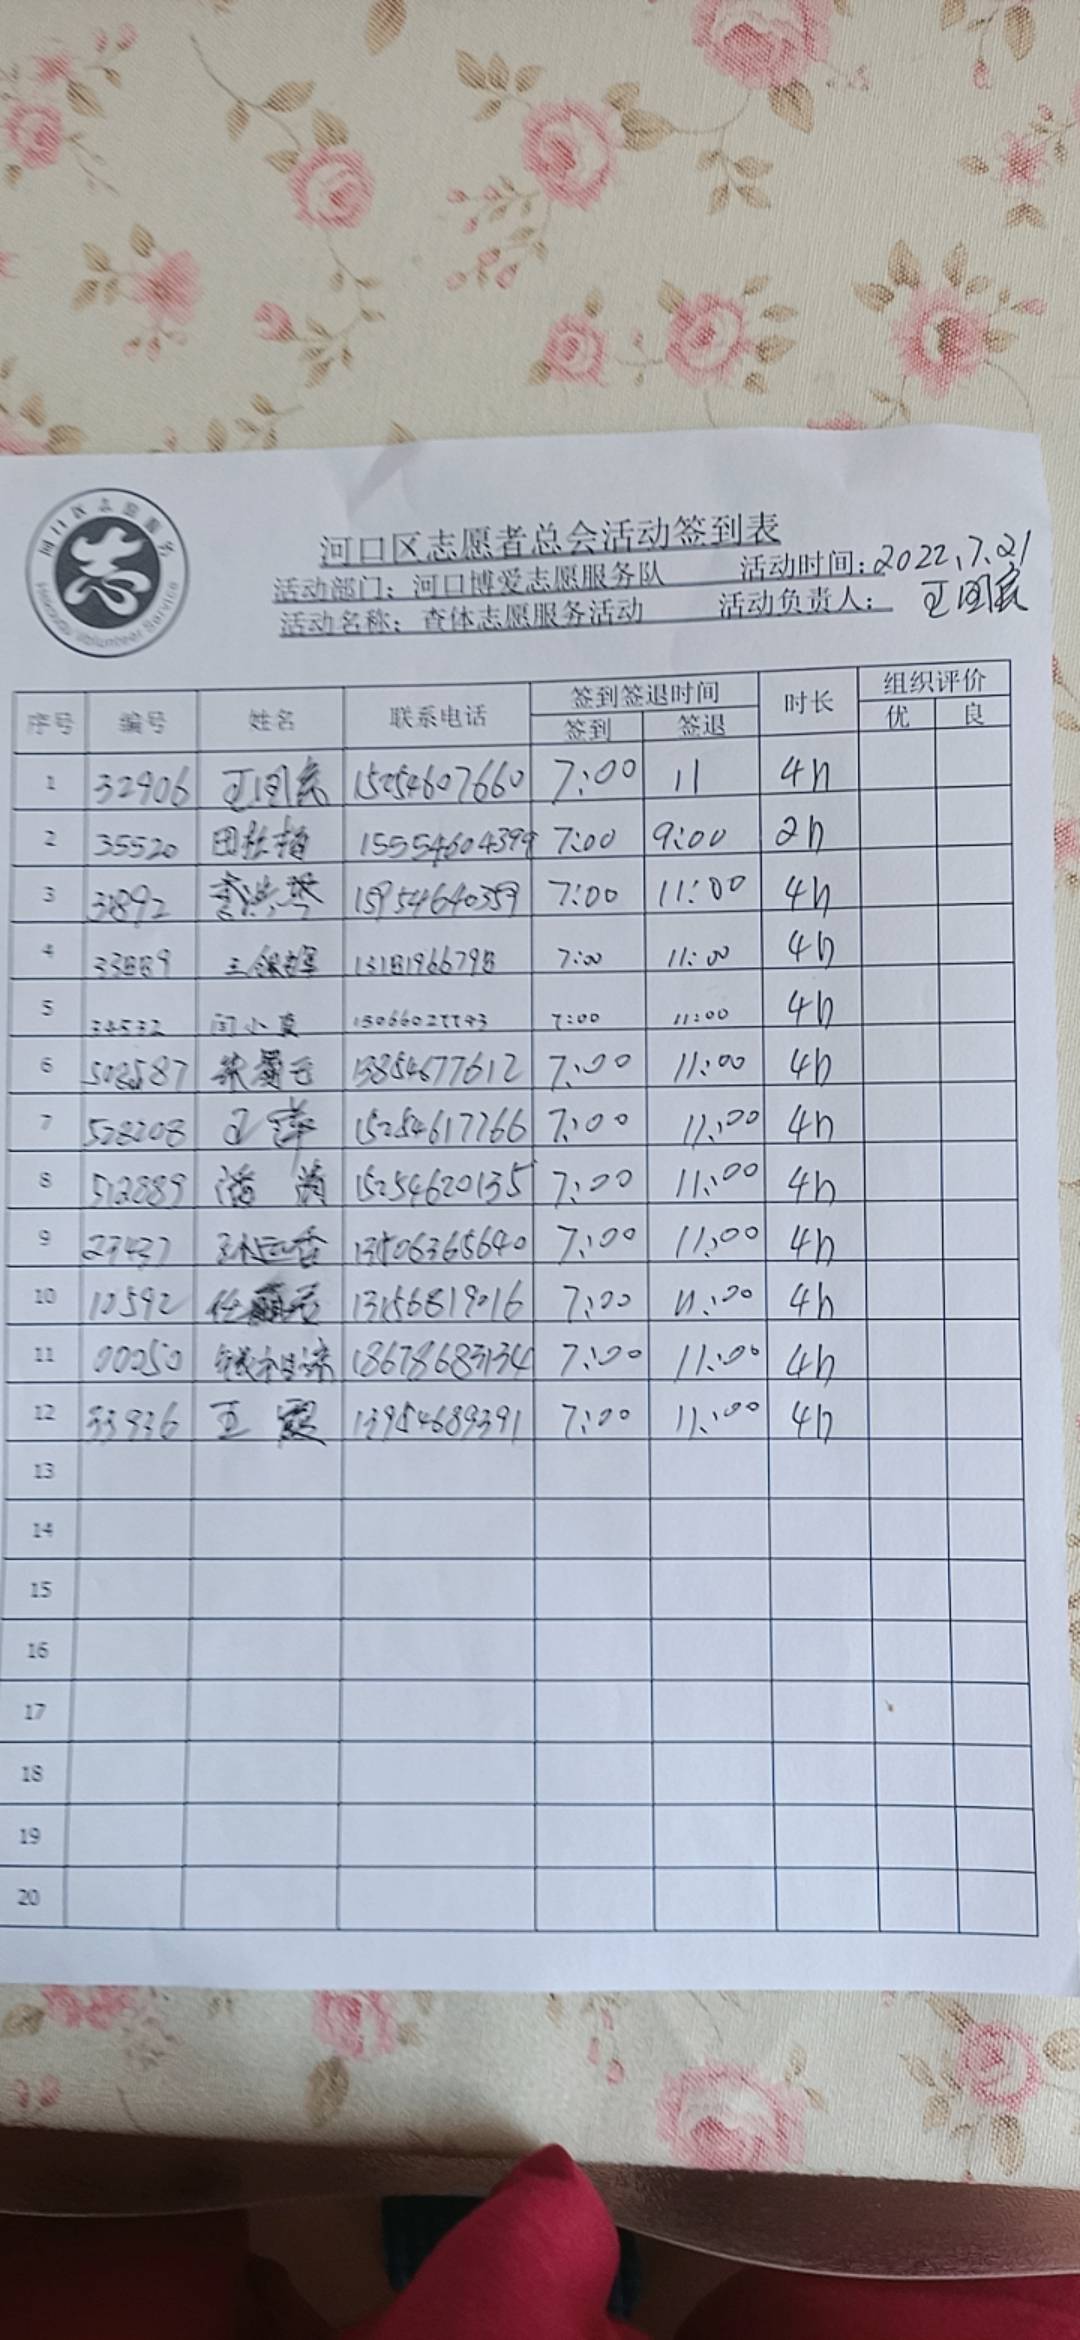 河口区志愿服务
Hekouqu Volunteer Service
河口区志愿者总会活动签到表
活动部门：河口博爱志愿服务队 活动时间：2022.7.21
活动名称：查体志愿服务活动 活动负责人：王国庆
序号 编号 姓名 联系电话 签到签退时间 时长 组织评价
签到 签退 优 良
1 32906 王国庆 15254607660 7:00 11 4h
2 35520 15554604399 7:00 9:00 2h
3 31892 15954640359 7:00 11:00 4h
4 7:00 11:00 4h
5 7:00 11:00 4h
6 13854677612 7:00 11:00 4h
7 528208 王萍 15254617766 7:00 11:00 4h
8 512889 潘 15254620135 7:00 11:00 4h
9 27437 13506365640 7:00 11:00 4h
10 10592 13156819016 7:00 11:00 4h
11 00050 18678683134 7:00 11:00 4h
12 33936 王霞 13954689391 7:00 11:00 4h
13
14
15
16
17
18
19
20